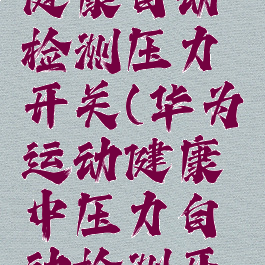 健康自动
检测压力
开关(华为
运动健康
中压力自
动检测开